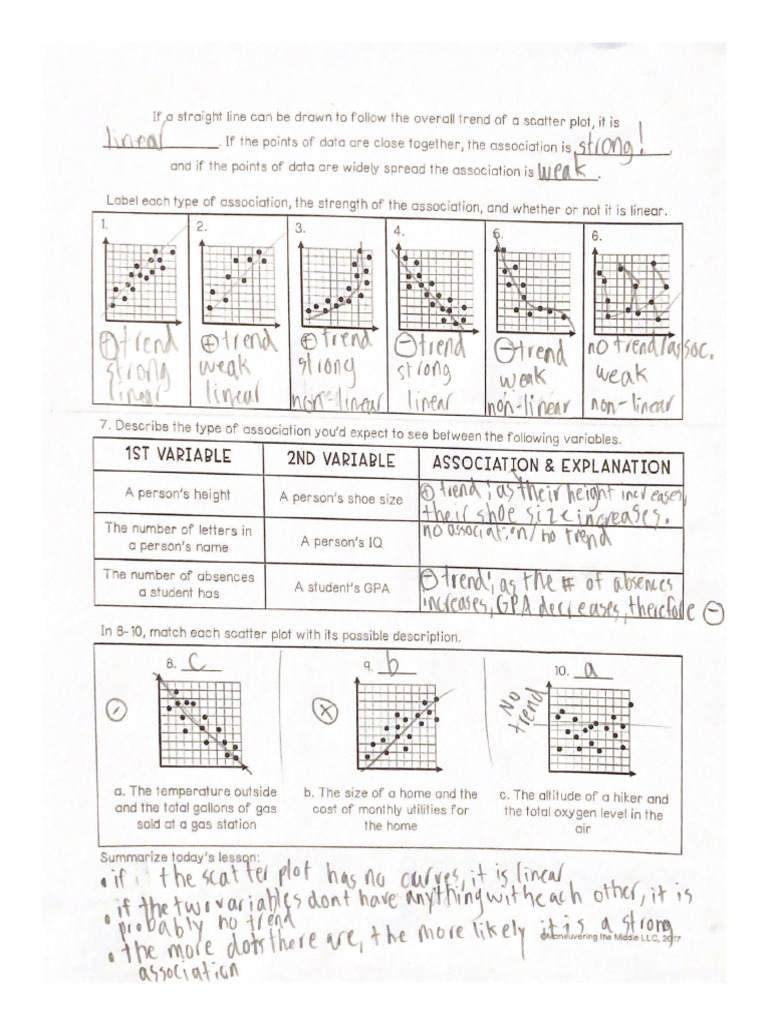 If a straight line can be drawn to follow the overall trend of a scatter plot, it is
linear. If the points of data are close together, the association is strong!
and if the points of data are widely spread the association is weak.
Label each type of association, the strength of the association, and whether or not it is linear.
1. 2. 3. 4. 5. 6.
⊕ trend
strong
linear
⊕ trend
weak
linear
⊕ trend
strong
non-linear
⊖ trend
strong
linear
⊖ trend
weak
non-linear
no trend/assoc.
weak
non-linear
7. Describe the type of association you'd expect to see between the following variables.
1ST VARIABLE 2ND VARIABLE ASSOCIATION & EXPLANATION
A person's height
A person's shoe size
⊕ trend; as their height increases,
their shoe size increases.
The number of letters in
a person's name
A person's IQ
no association/no trend
The number of absences
a student has
A student's GPA
⊖ trend; as the # of absences
increases, GPA decreases, therfore ⊖
In 8-10, match each scatter plot with its possible description.
8. c
9. b
10. a
No
trend
a. The temperature outside
and the total gallons of gas
sold at a gas station
b. The size of a home and the
cost of monthly utilities for
the home
c. The altitude of a hiker and
the total oxygen level in the
air
Summarize today's lesson:
• if the scatter plot has no curves, it is linear
• if the two variables dont have anything with each other, it is
probably no trend
• the more dots there are, the more likely it is a strong
association
©Maneuvering the Middle LLC, 2017